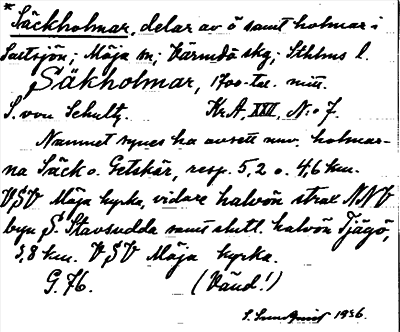 * Säckholmar, delar av ö samt holmar i
Saltsjön; Möja sn; Värmdö skg; Sthlms l.
Säkholmar, 1700-tal. mitt.
S. von Schultz. Kr.A. XXII, N:o 7.
Namnet synes ha avsett nuv. holmar-
na Säck o. Getskär, resp. 5,2 o. 4,6 km.
VSV Möja kyrka, vidare halvön strax NNV
byn S. Stavsudda samt slutl. halvön Tjägö,
3,8 km. VSV Möja kyrka.
G. 76. (Vänd!)
S. Sundquist 1936.